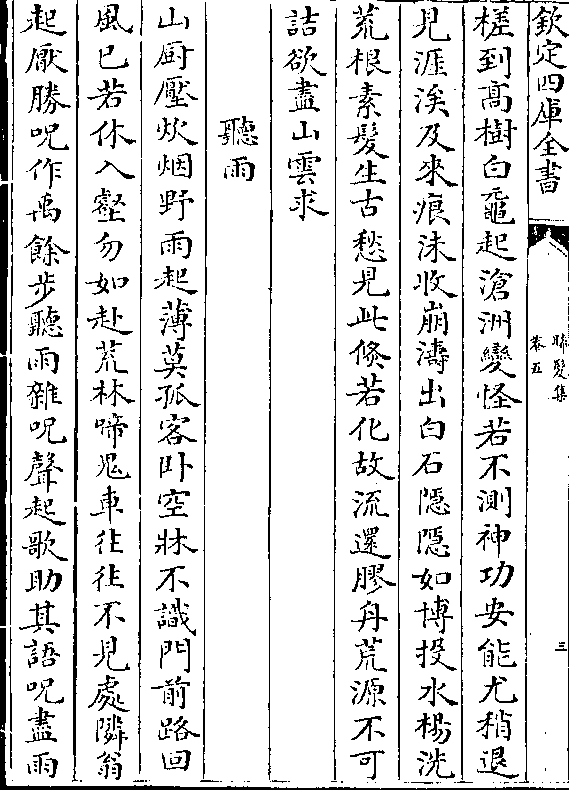 欽定四庫全書
晞髪集
卷五
三
槎到高樹白黿起滄洲變怪若不測神功安能尤稍退
見涯涘及來痕沫收崩濤出白石隱隱如博投水楊洗
荒根素髮生古愁見此倐若化故流還膠舟荒源不可
詰欲盡山雲求
聽雨
山厨壓炊烟野雨起薄莫孤客卧空牀不識門前路回
風已若休入壑勿如赴荒林啼鬼車往往不見處隣翁
起厭勝呪作禹餘步聽雨雜呪聲起歌助其語呪盡雨